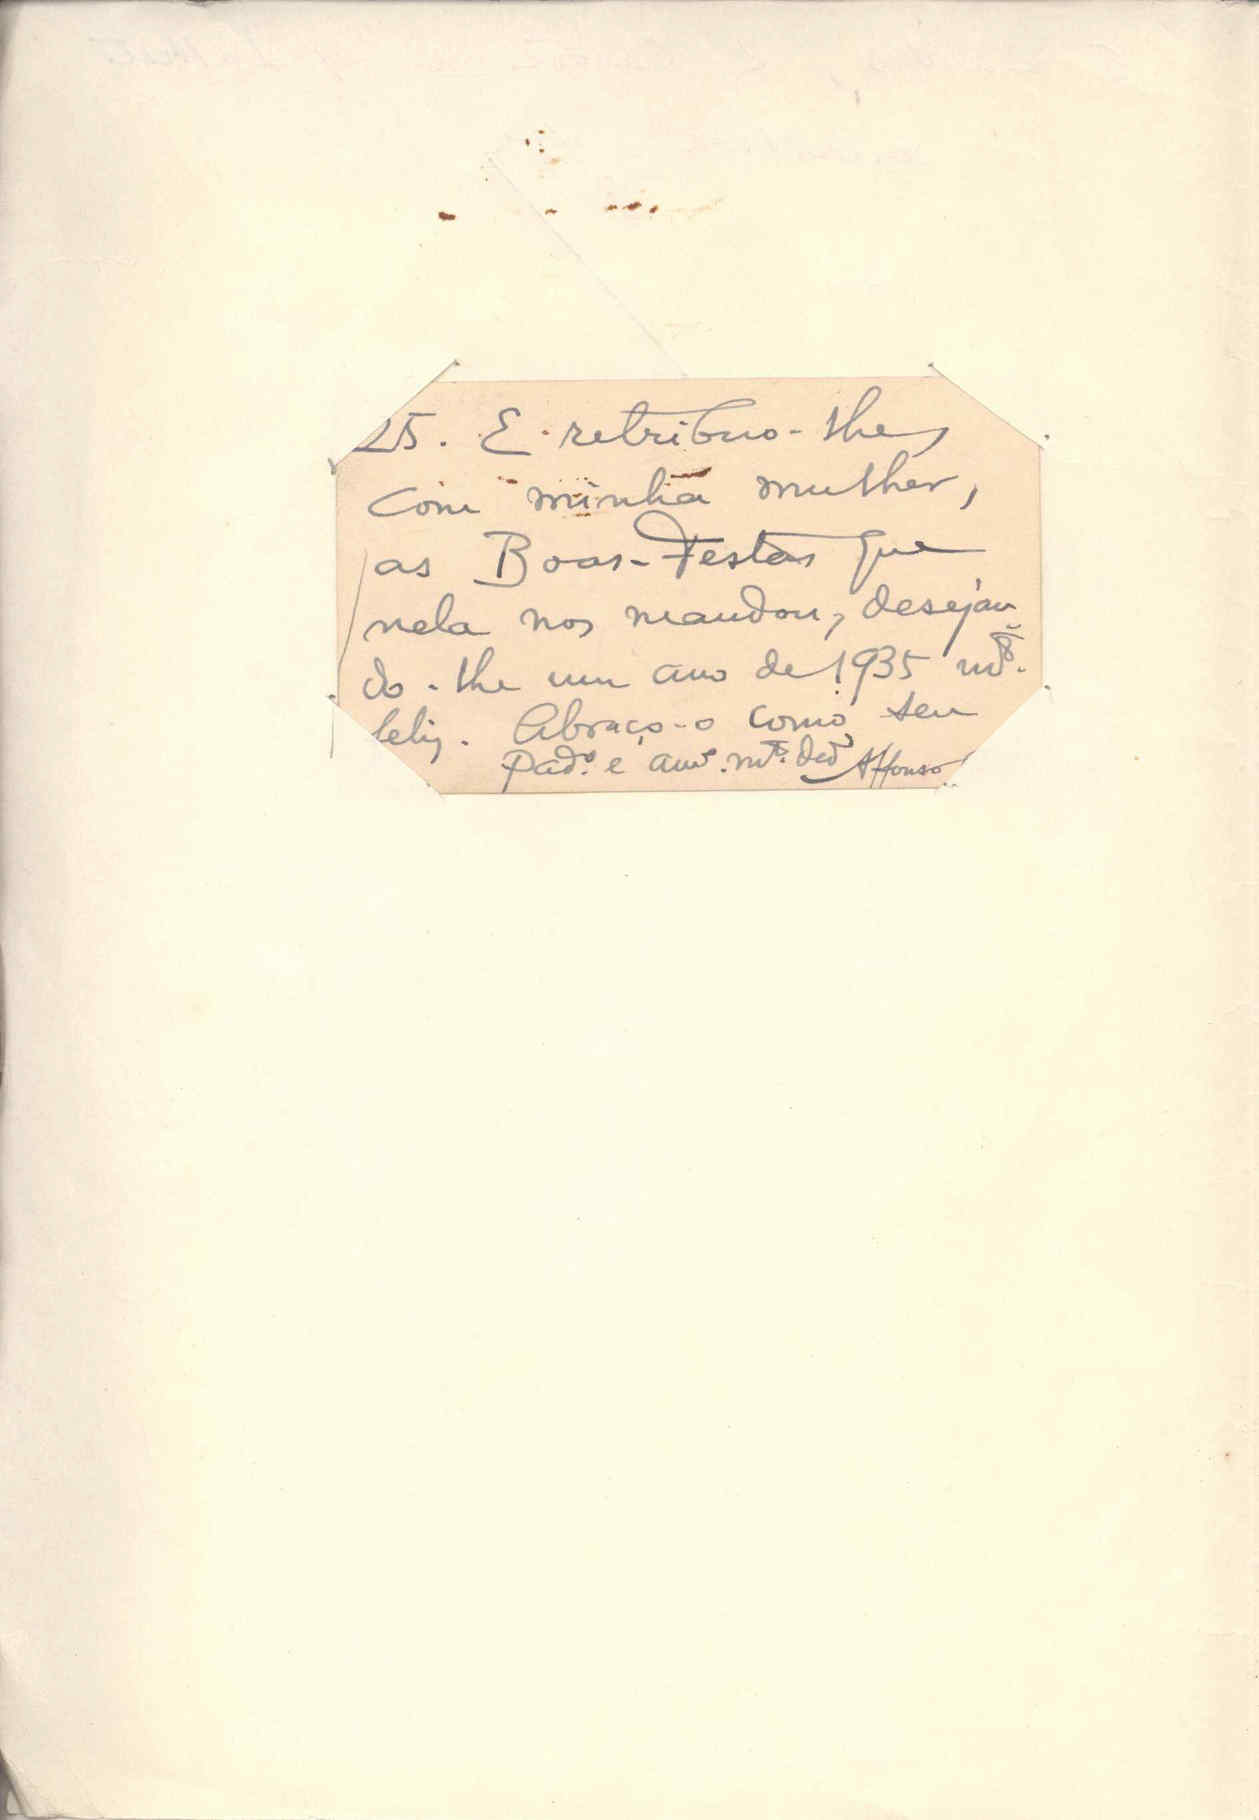 25. E retribuo-lhe,
com minha mulher,
as Boas-Festas que
nela nos mandou, desejan
do-lhe um ano de 1935 mtº.
feliz. Abraço-o como seu
Padº. e amº. mtº. dedº Affonso